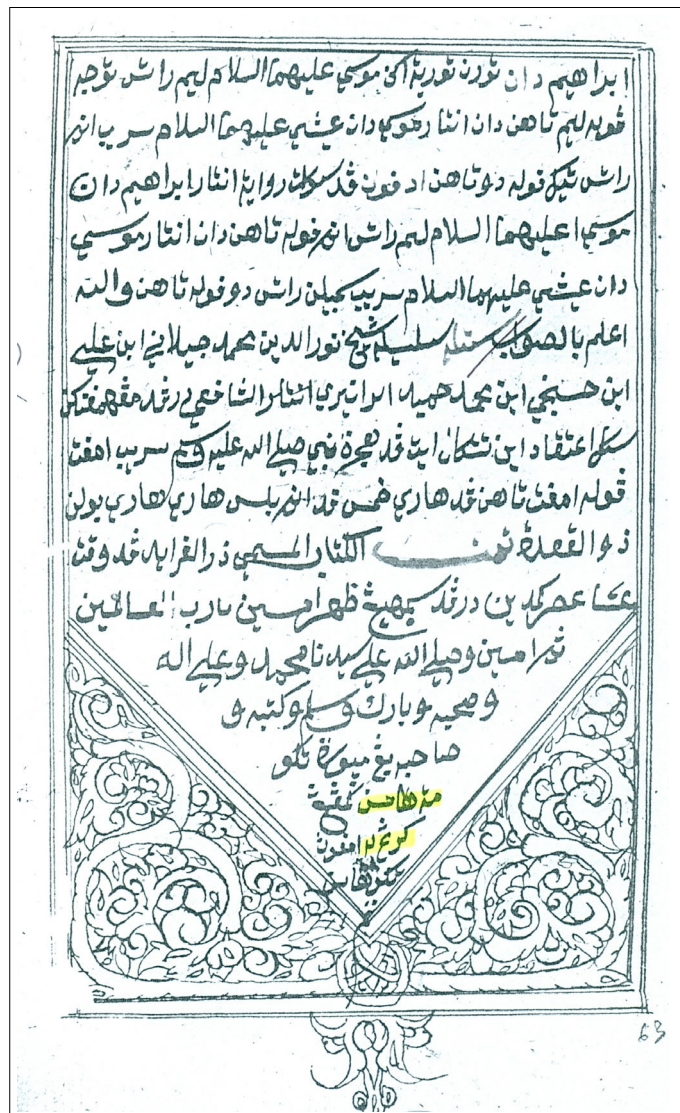 ابراهيم دان تورن تورية اكن موسي عليهما السلام ليم راتس توجه
ڤوله ليم تاهن دان انتار موسي دان عيسي عليهما السلام سريب انم
راتس تيݢ ڤوله دو تاهن ادڤون ڤد سواة رواية انتار ابراهيم دان
موسي عليهما السلام ليم راتس انم ڤوله تاهن دان انتار موسي
دان عيسي عليهما السلام سريب سمبيلن راتس دو ڤوله تاهن والله
اعلم بالصواب ستله سلسيله شيخ نور الدين محمد جيلاني ابن علي
ابن حسنجي ابن محمد حميد الرانيري الشافعي درڤد
سݢل اعتقاد اين تتكال ايت ڤد هجرة نبي صلى الله عليه وسلم سريب امڤت
ڤوله امڤت تاهن ڤد هاري خمس ڤد انم بلس هاري هاري بولن
ذو القعدة تمت الكتاب المسمى در الفرايد ڤد وقت
عصر كمدين درڤد ظهر امين يا رب العالمين
ثم امين وصلى الله على سيدنا محمد وعلى اله
وصحبه وبارك وسلم وكتبه و
صاحبه يڠ ميورة تڠكو
كمڤوڠ
كرڠ
63